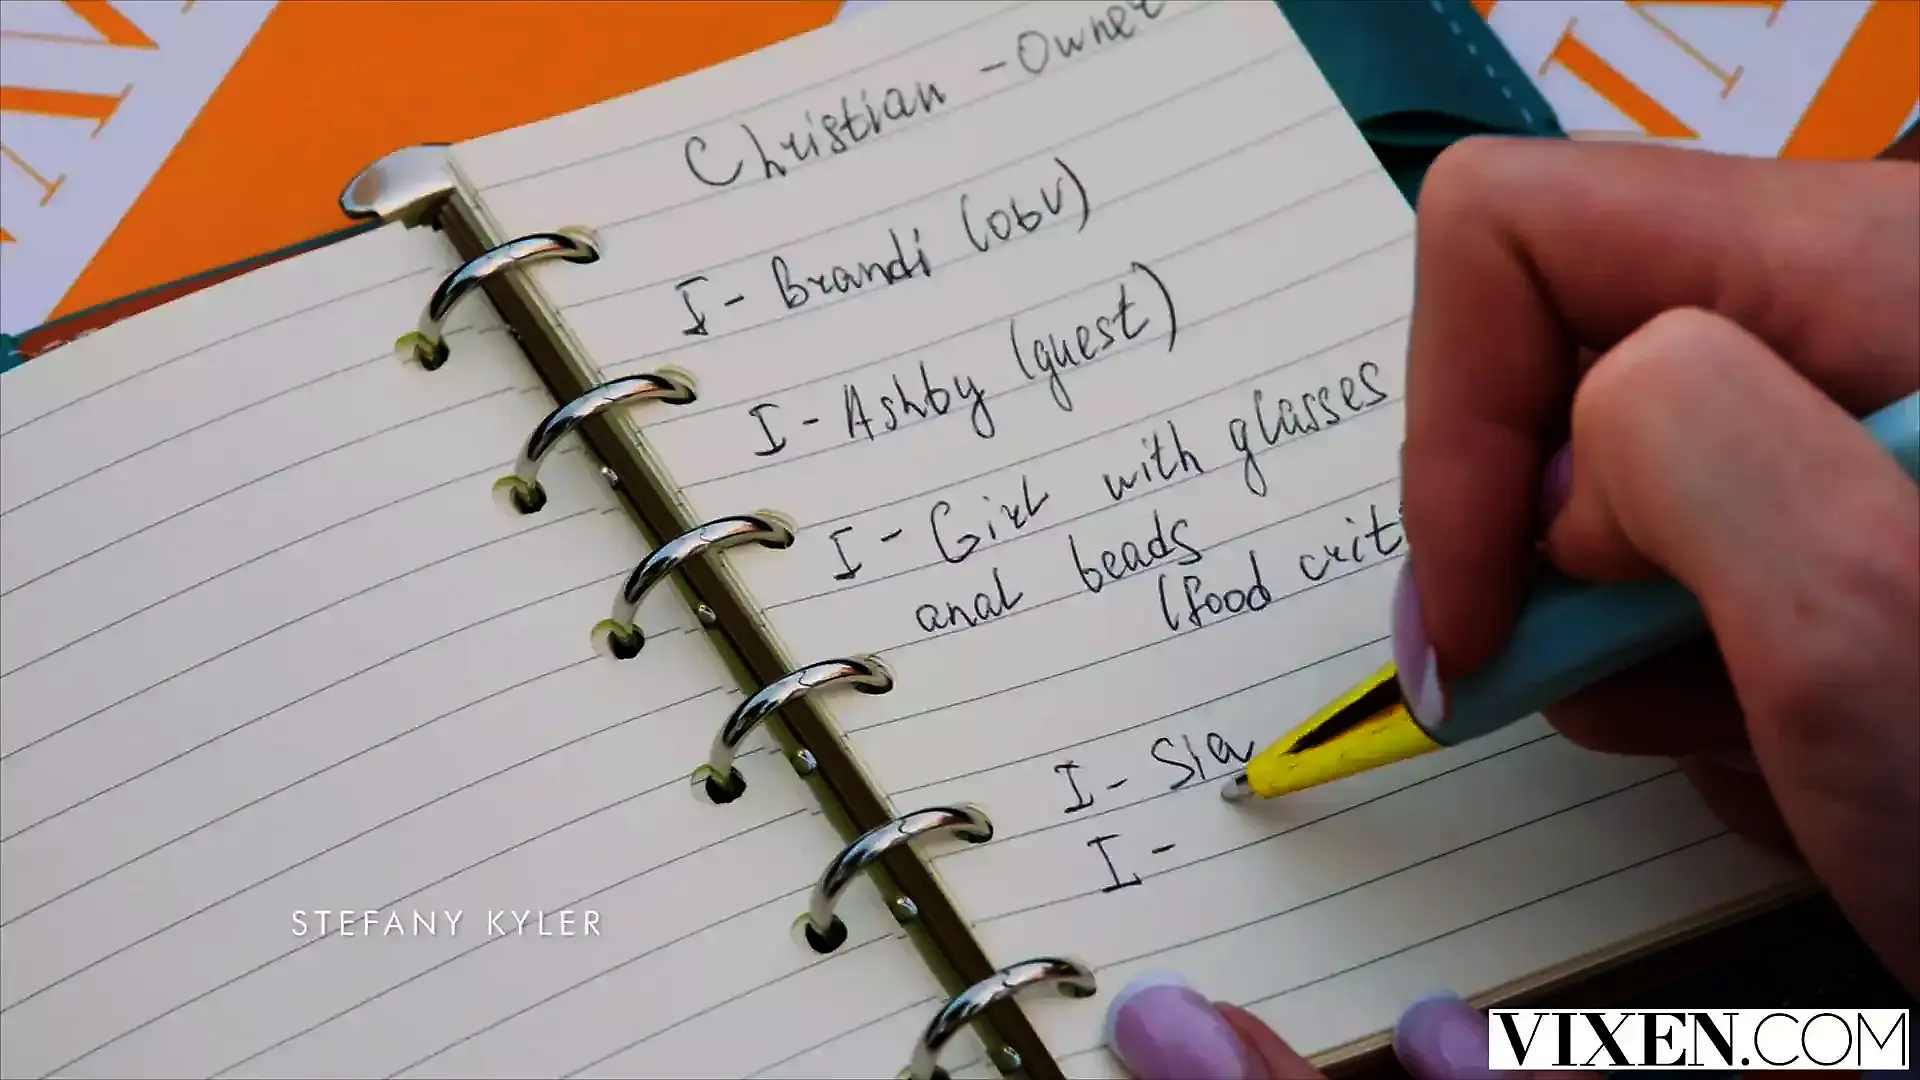 Christian - Owner
I - Brandi (obv)
I - Ashby (guest)
I - Girl with glasses
anal beads
(food crit
I - Sla
I -
STEFANY KYLER
VIXEN.COM